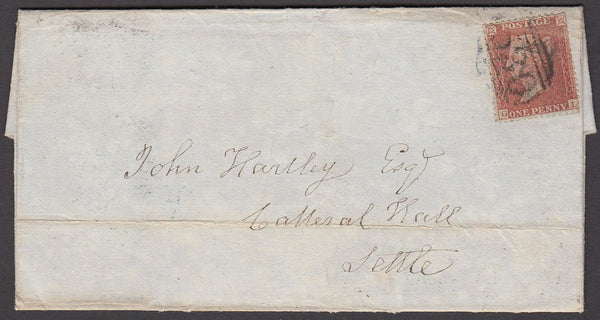 POSTAGE
ONE PENNY
John Hartley Esqr
Catteral Hall
Settle